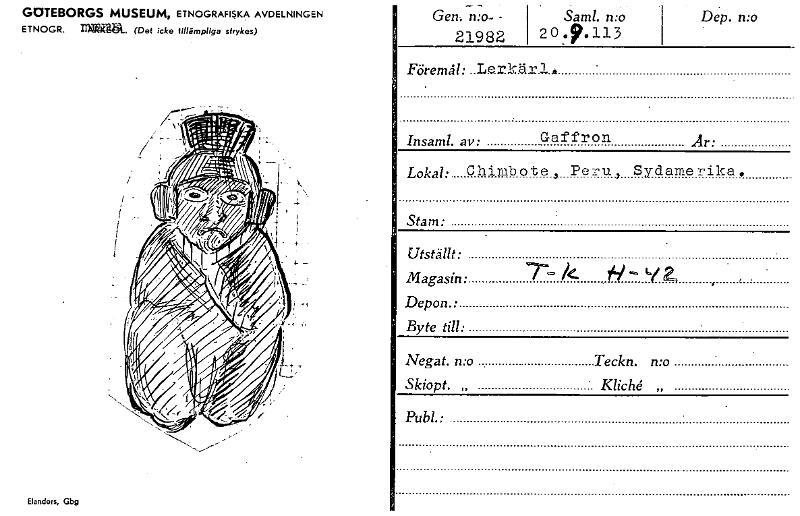 GÖTEBORGS MUSEUM, ETNOGRAFISKA AVDELNINGEN
ETNOGR. (Det icke tillämpliga strykes)
Elanders, Gbg
Gen. n:o Saml. n:o Dep. n:o
21982 20.9.113
Föremål: Lerkärl.
Insaml. av: Gaffron År:
Lokal: Chimbote, Peru, Sydamerika.
Stam:
Utställt:
Magasin: T-K H-42
Depon.:
Byte till:
Negat. n:o Teckn. n:o
Skiopt. „ Kliché „
Publ.: